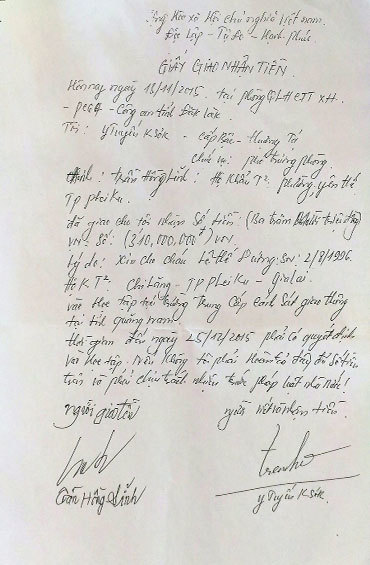 Cộng Hòa xã Hội chủ nghĩa Việt nam.
Độc lập - Tự do - Hạnh phúc
GIẤY GIAO NHẬN TIỀN
Hôm nay ngày 18/11/2015. tại phòng QLHC TT XH.
- PC64 - Công an tỉnh Đăk Lăk.
Tôi: Y Tuyến Ksơk - Cấp Bậc - Thượng Tá
Chức vụ: phó trưởng phòng
Trần Hồng Lĩnh: Hộ Khẩu T²: phường yên thế
TP pleiku.
đã giao cho tôi nhận Số tiền: (Ba trăm mười triệu đồng)
Số: (310,000,000đ)
Lý do: Xin cho cháu Lê Thế Dương: Sn: 2/8/1996.
Hộ K T²: Chi Lăng - TP pleiku - Gialai.
vào Học tập tại trường Trung Cấp Cảnh Sát giao thông
tại tỉnh quảng nam.
thời gian đến ngày 25/12/2015 phải có quyết định
vào Học tập. Nếu không tôi phải Hoàn trả đầy đủ số tiền
trên và phải chịu trách nhiệm trước pháp luật nhà nước!
người giao tiền
người nhận tiền.
Trần Hồng Lĩnh
Y Tuyến Ksơk.